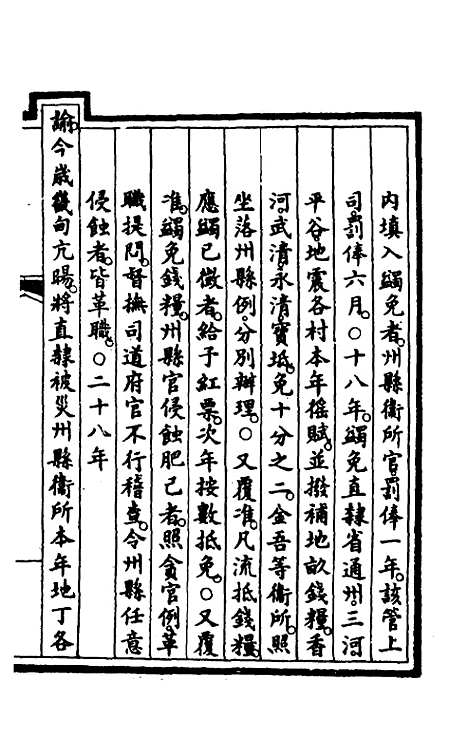 內填入蠲免者。州縣衛所官。罰俸一年。該管上
司。罰俸六月。○十八年。蠲免直隸省通州。三河。
平谷地震各村本年徭賦。並撥補地畝錢糧。香
河。武清。永清。寶坻。免十分之二。金吾等衛所。照
坐落州縣例。分別辦理。○又覆准。凡流抵錢糧。
應蠲已徵者。給予紅票。次年按數抵免。○又覆
准。蠲免錢糧。州縣官侵蝕肥己者。照貪官例。革
職提問。督撫司道府官不行稽查。令州縣任意
侵蝕者。皆革職。○二十八年
諭。今歲畿甸亢暘。將直隸被災州縣衛所本年地丁各